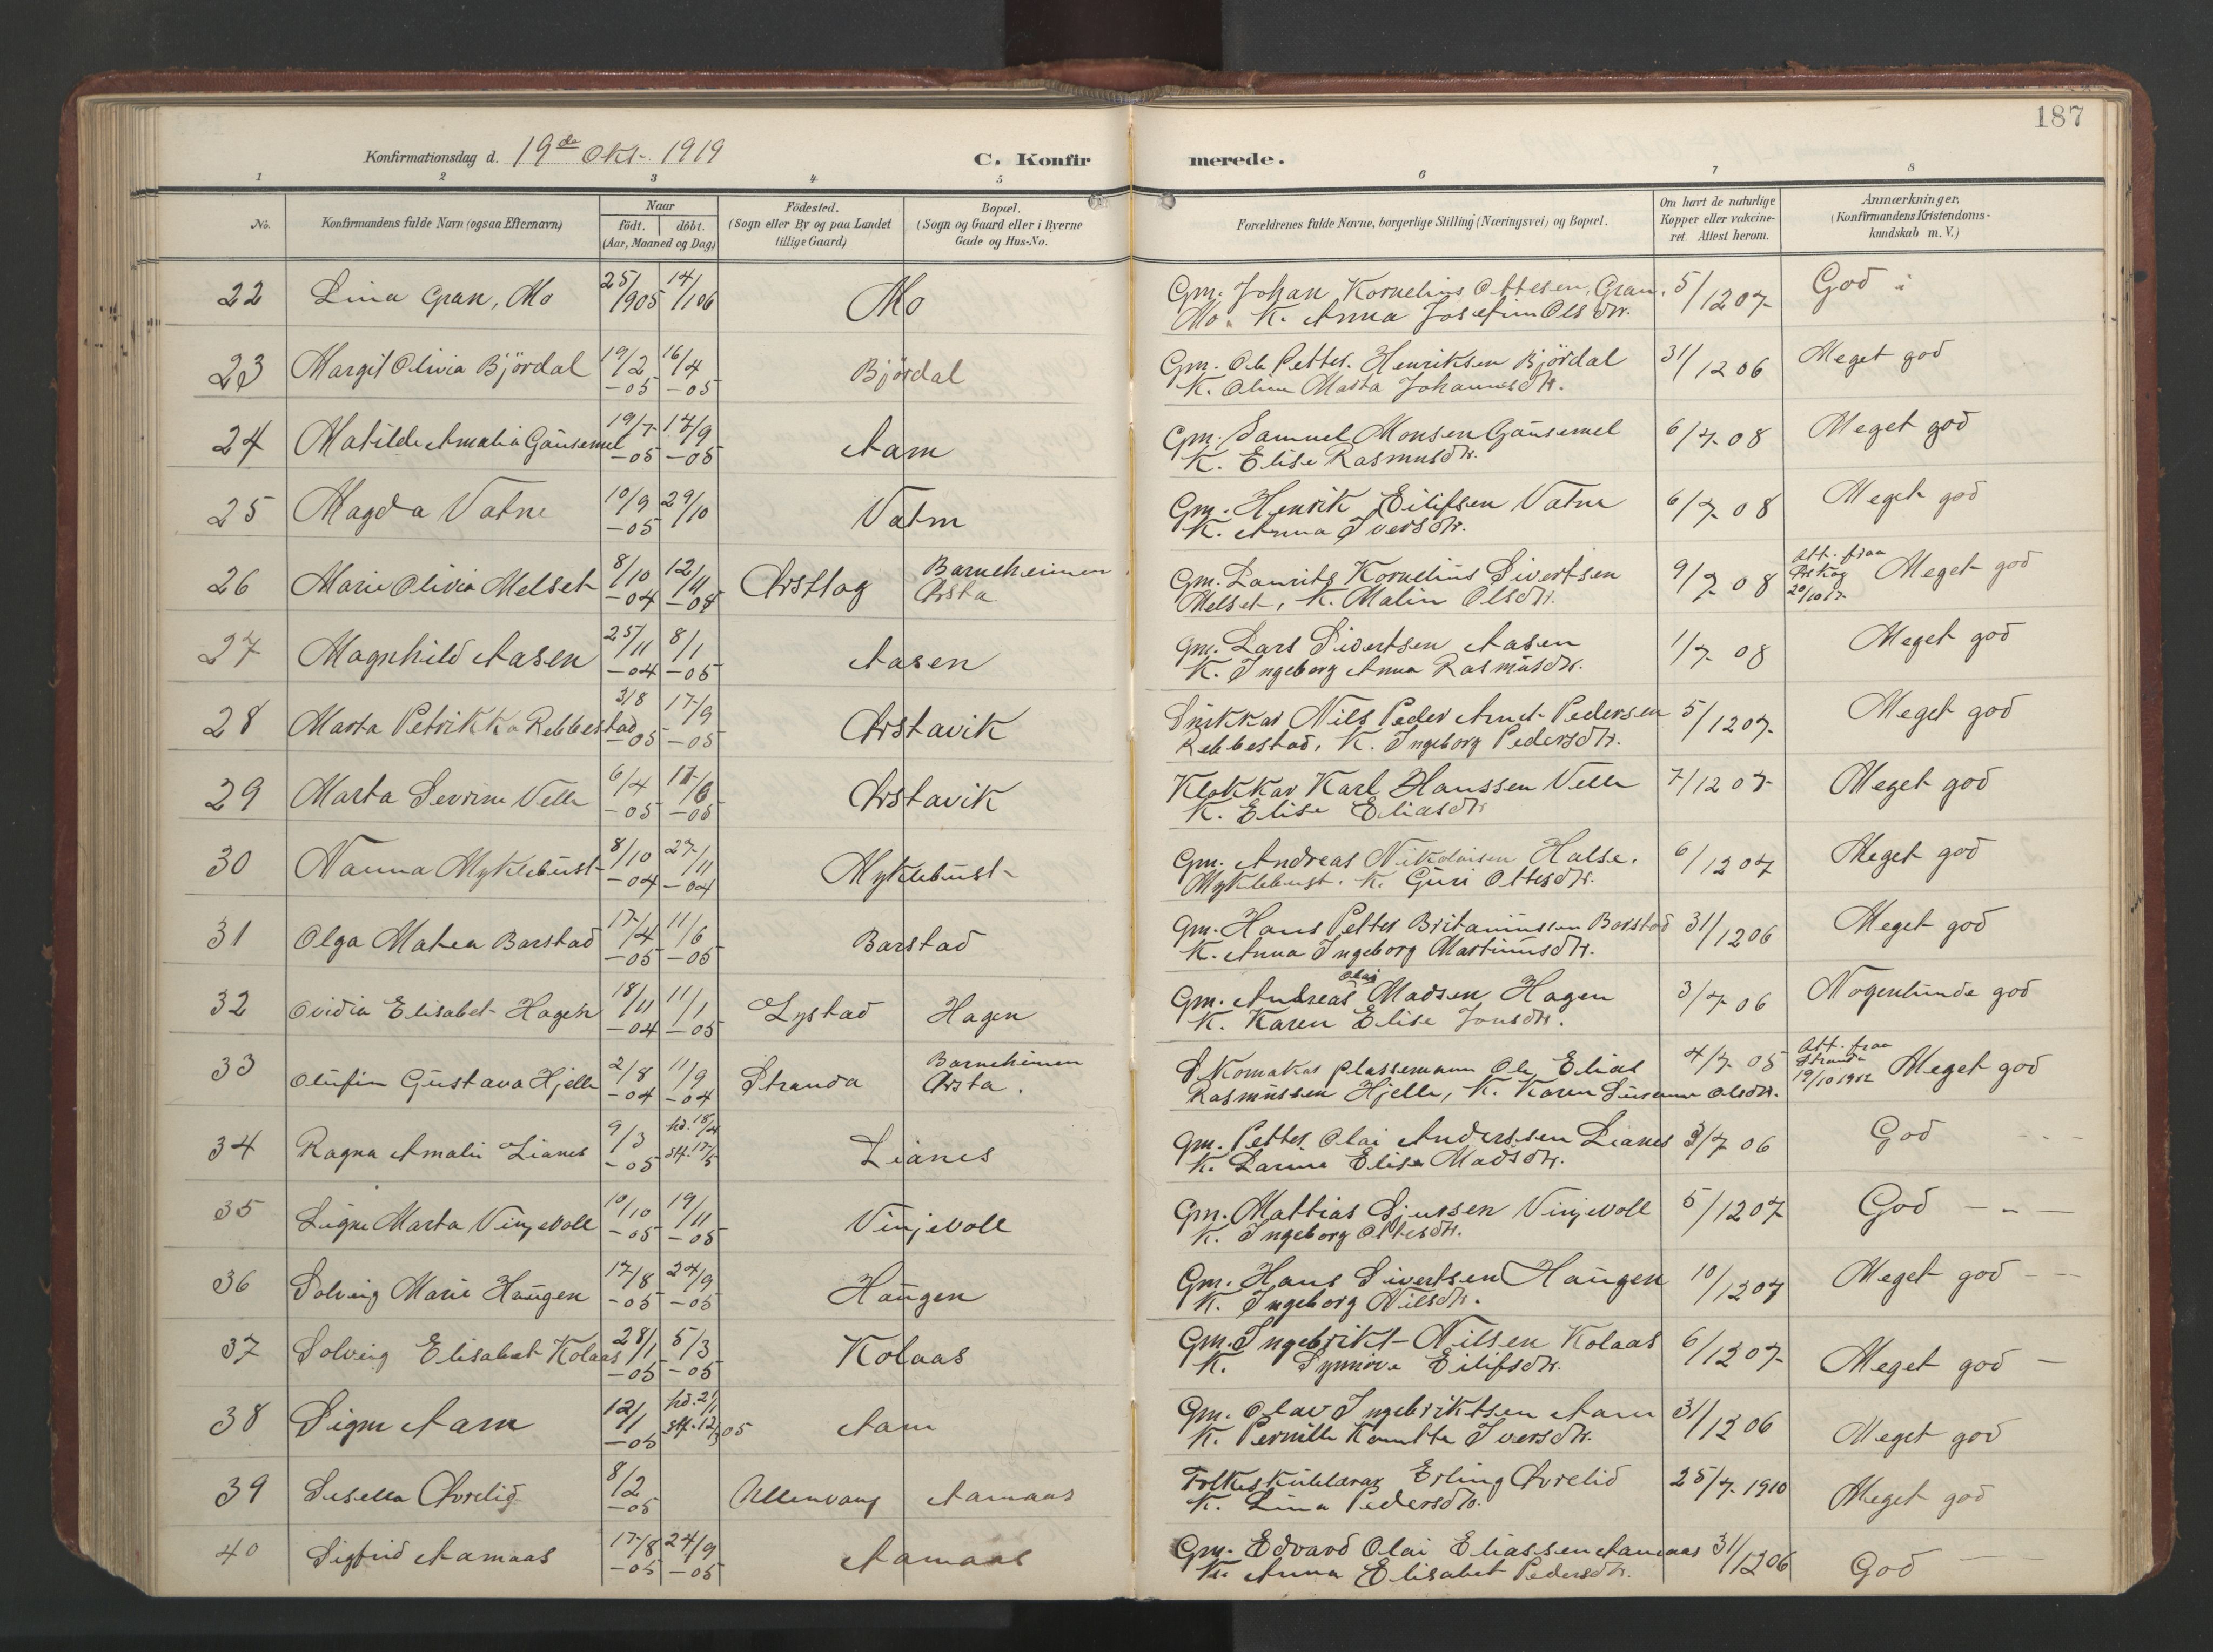 187
Konfirmationsdag d. 19de Okt. 1919
C. Konfirmerede.
1 2 3 4 5 6 7 8
No.
Konfirmandens fulde Navn (ogsaa Efternavn)
Naar
født. døbt.
(Aar, Maaned og Dag)
Födested.
(Sogn eller By og paa Landet
tillige Gaard)
Bopæl.
(Sogn og Gaard eller i Byerne
Gade og Hus-No.
Forældrenes fulde Navne, borgerlige Stilling (Næringsvei) og Bopæl.
Om havt de naturlige
Kopper eller vakcine-
ret Attest herom.
Anmærkninger.
(Konfirmandens Kristendoms-
kundskab m. V.)
22 Lina Gran, Mo 25/1 905 14/1 06 Mo Gm. Johan Kornelius Ottesen, Gran, 5/12 07 God
Mo. K. Anna Josefine Olsdtr.
23 Margit Olivia Björdal 19/2 -05 16/4 -05 Björdal Gm. Ole Petter Henriksen Björdal 31/12 06 Meget god
K. Oline Marta Johannesdtr.
24 Matilde Amalia Gausemel 19/7 -05 17/9 -05 Aam Gm. Samuel Monsen Gausemel 6/7 08 Meget god
K. Elise Rasmusdtr.
25 Magda Vatne 10/9 -05 29/10 Vatne Gm. Henrik Eilifsen Vatne 6/7 08 Meget god
K. Anna Iversdtr.
26 Marie Olivia Melset 8/10 -04 12/11 -04 Ørskog Barneheimen Ørsta Gm. Laurits Kornelius Sivertsen 9/7 08 Att. fraa Ørskog 20/10 17 Meget god
Melset, K. Malin Olsdtr.
27 Magnhild Aasen 25/11 -04 8/1 -05 Aasen Gm. Lars Sivertsen Aasen 1/7 08 Meget god
K. Ingeborg Anna Rasmusdtr.
28 Marta Petrikka Rebbestad 3/8 -05 17/9 -05 Ørstavik Snikkar Nils Peder Arnet Pedersen 5/12 07 Meget god
Rebbestad, K. Ingeborg Pedersdtr.
29 Marta Sevrine Velle 6/4 -05 11/6 -05 Ørstavik Klokkar Karl Hanssen Velle 7/12 07 Meget god
K. Elise Eliasdtr
30 Nanna Myklebust 8/10 -04 27/11 -04 Myklebust Gm. Andreas Nikolaisen Halse. 6/12 07 Meget god
Myklebust. K. Guri Ottesdtr.
31 Olga Matea Barstad 17/4 -05 11/6 -05 Barstad Gm. Hans Petter Britanussen Barstad 31/12 06 Meget god
K. Anna Ingeborg Martinusdtr.
32 Ovidia Elisabet Hagen 18/11 -04 11/1 -05 Lystad Hagen Gm. Andreas Olai Madsen Hagen 3/7 06 Nogenlunde god
K. Karen Elise Jonsdtr.
33 Olufin Gustava Hjelle 2/8 -04 11/9 -04 Stranda Barneheimen Ørsta. Skomakar plassemann Ole Elias 4/7 05 Att. fraa Stranda 19/10 1912 Meget god
Rasmussen Hjelle, K. Karen Susanne Olsdtr.
34 Ragna Amalie Lianes 9/3 -05 hd. 18/4 st. 17/5 Lianes Gm. Petter Olai Anderssen Lianes 3/7 06 God
K. Larine Elise Madsdtr.
35 Signe Marta Vinjevoll 10/10 -05 19/11 -05 Vinjevoll Gm. Mattias Sjursen Vinjevoll 5/12 07 God - " -
K. Ingeborg Ottesdtr.
36 Solveig Marie Haugen 17/8 -05 24/9 -05 Haugen Gm. Hans Sivertsen Haugen 10/12 07 Meget god
K. Ingeborg Nilsdtr.
37 Solveig Elisabet Kolaas 28/1 -05 5/3 -05 Kolaas Gm. Ingebrikt Nilsen Kolaas 6/12 07 Meget god
K. Synnöve Eilifsdtr.
38 Signe Aam 12/1 -05 hd. 21/1 st. 12/3 05 Aam Gm. Olav Ingebriktsen Aam 31/12 06 Meget god
K. Pernille Iversdtr.
39 Sisella Aurelid 8/2 -05 Ullensvang Aamaas Folkeskulelærar Erling Aurelid 25/7 1910 Meget god
K. Lina Pedersdtr.
40 Sigfrid Aamaas 17/8 -05 24/9 -05 Aamaas Gm. Edvard Olai Eliassen Aamaas 31/12 06 God
K. Anna Elisabet Pedersdtr.